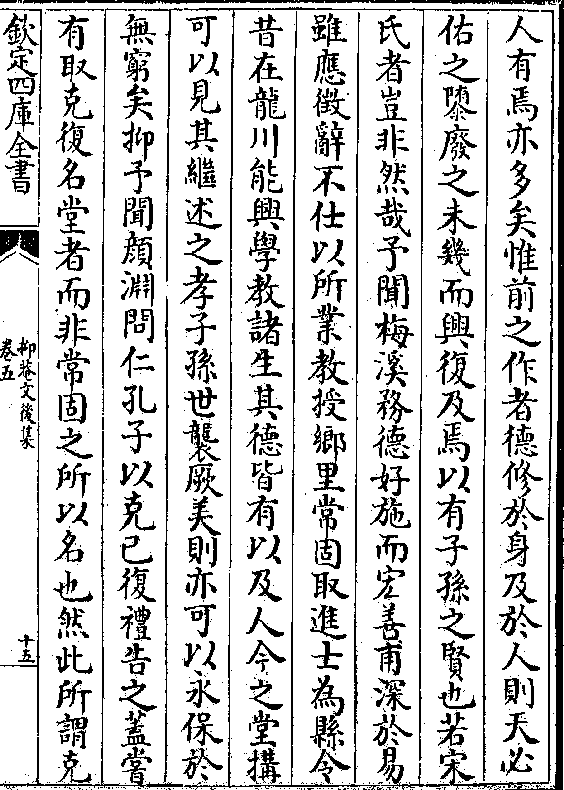 人有焉亦多矣惟前之作者德修於身及於人則天必
佑之隳廢之未幾而興復及焉以有子孫之賢也若宋
氏者豈非然哉予聞梅溪務德好施而宏善甫深於易
雖應徵辭不仕以所業教授鄉里常固取進士為縣令
昔在龍川能興學教諸生其德皆有以及人今之堂搆
可以見其繼述之孝子孫世襲厥美則亦可以永保於
無窮矣抑予聞顔淵問仁孔子以克已復禮告之蓋嘗
有取克復名堂者而非常固之所以名也然此所謂克
欽定四庫全書
抑菴文後集
卷五
十五